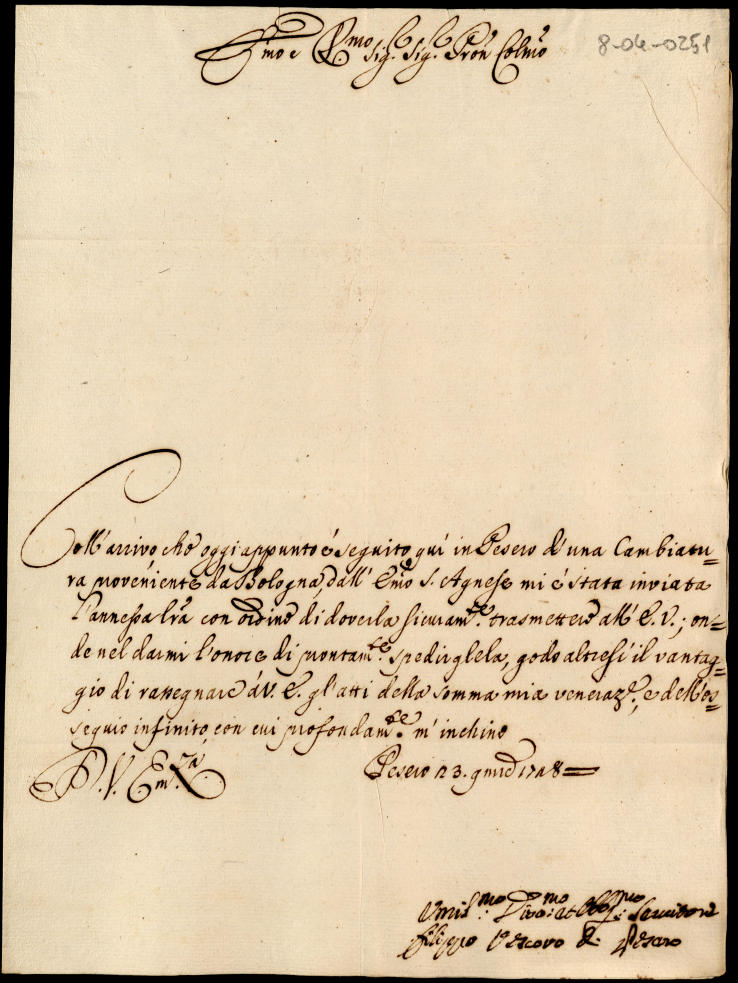 Emo e Rmo Sig. Sig. Pron Colmo
8-04-0251
Coll'arrivo che oggi appunto è seguito quì in Pesero d'una Cambiatu=
ra proveniente da Bologna, dall' Emo S. Agnese mi è stata inviata
l'annessa lra con ordine di doverla sicuramte. trasmettere all' E.V.; on=
de nel darmi l'onore di prontamte. spedirglela, godo altresì il vantag=
gio di rassegnare à V. E. gl'atti della somma mia veneraze., e dell'os=
sequio infinito, con cui profondamte. m'inchino
D. V. Em.za
Pesero 23. gmre 17
Umilmo: Divo:mo et Obbmo: Servidore
Filippo Vescovo di Pesaro